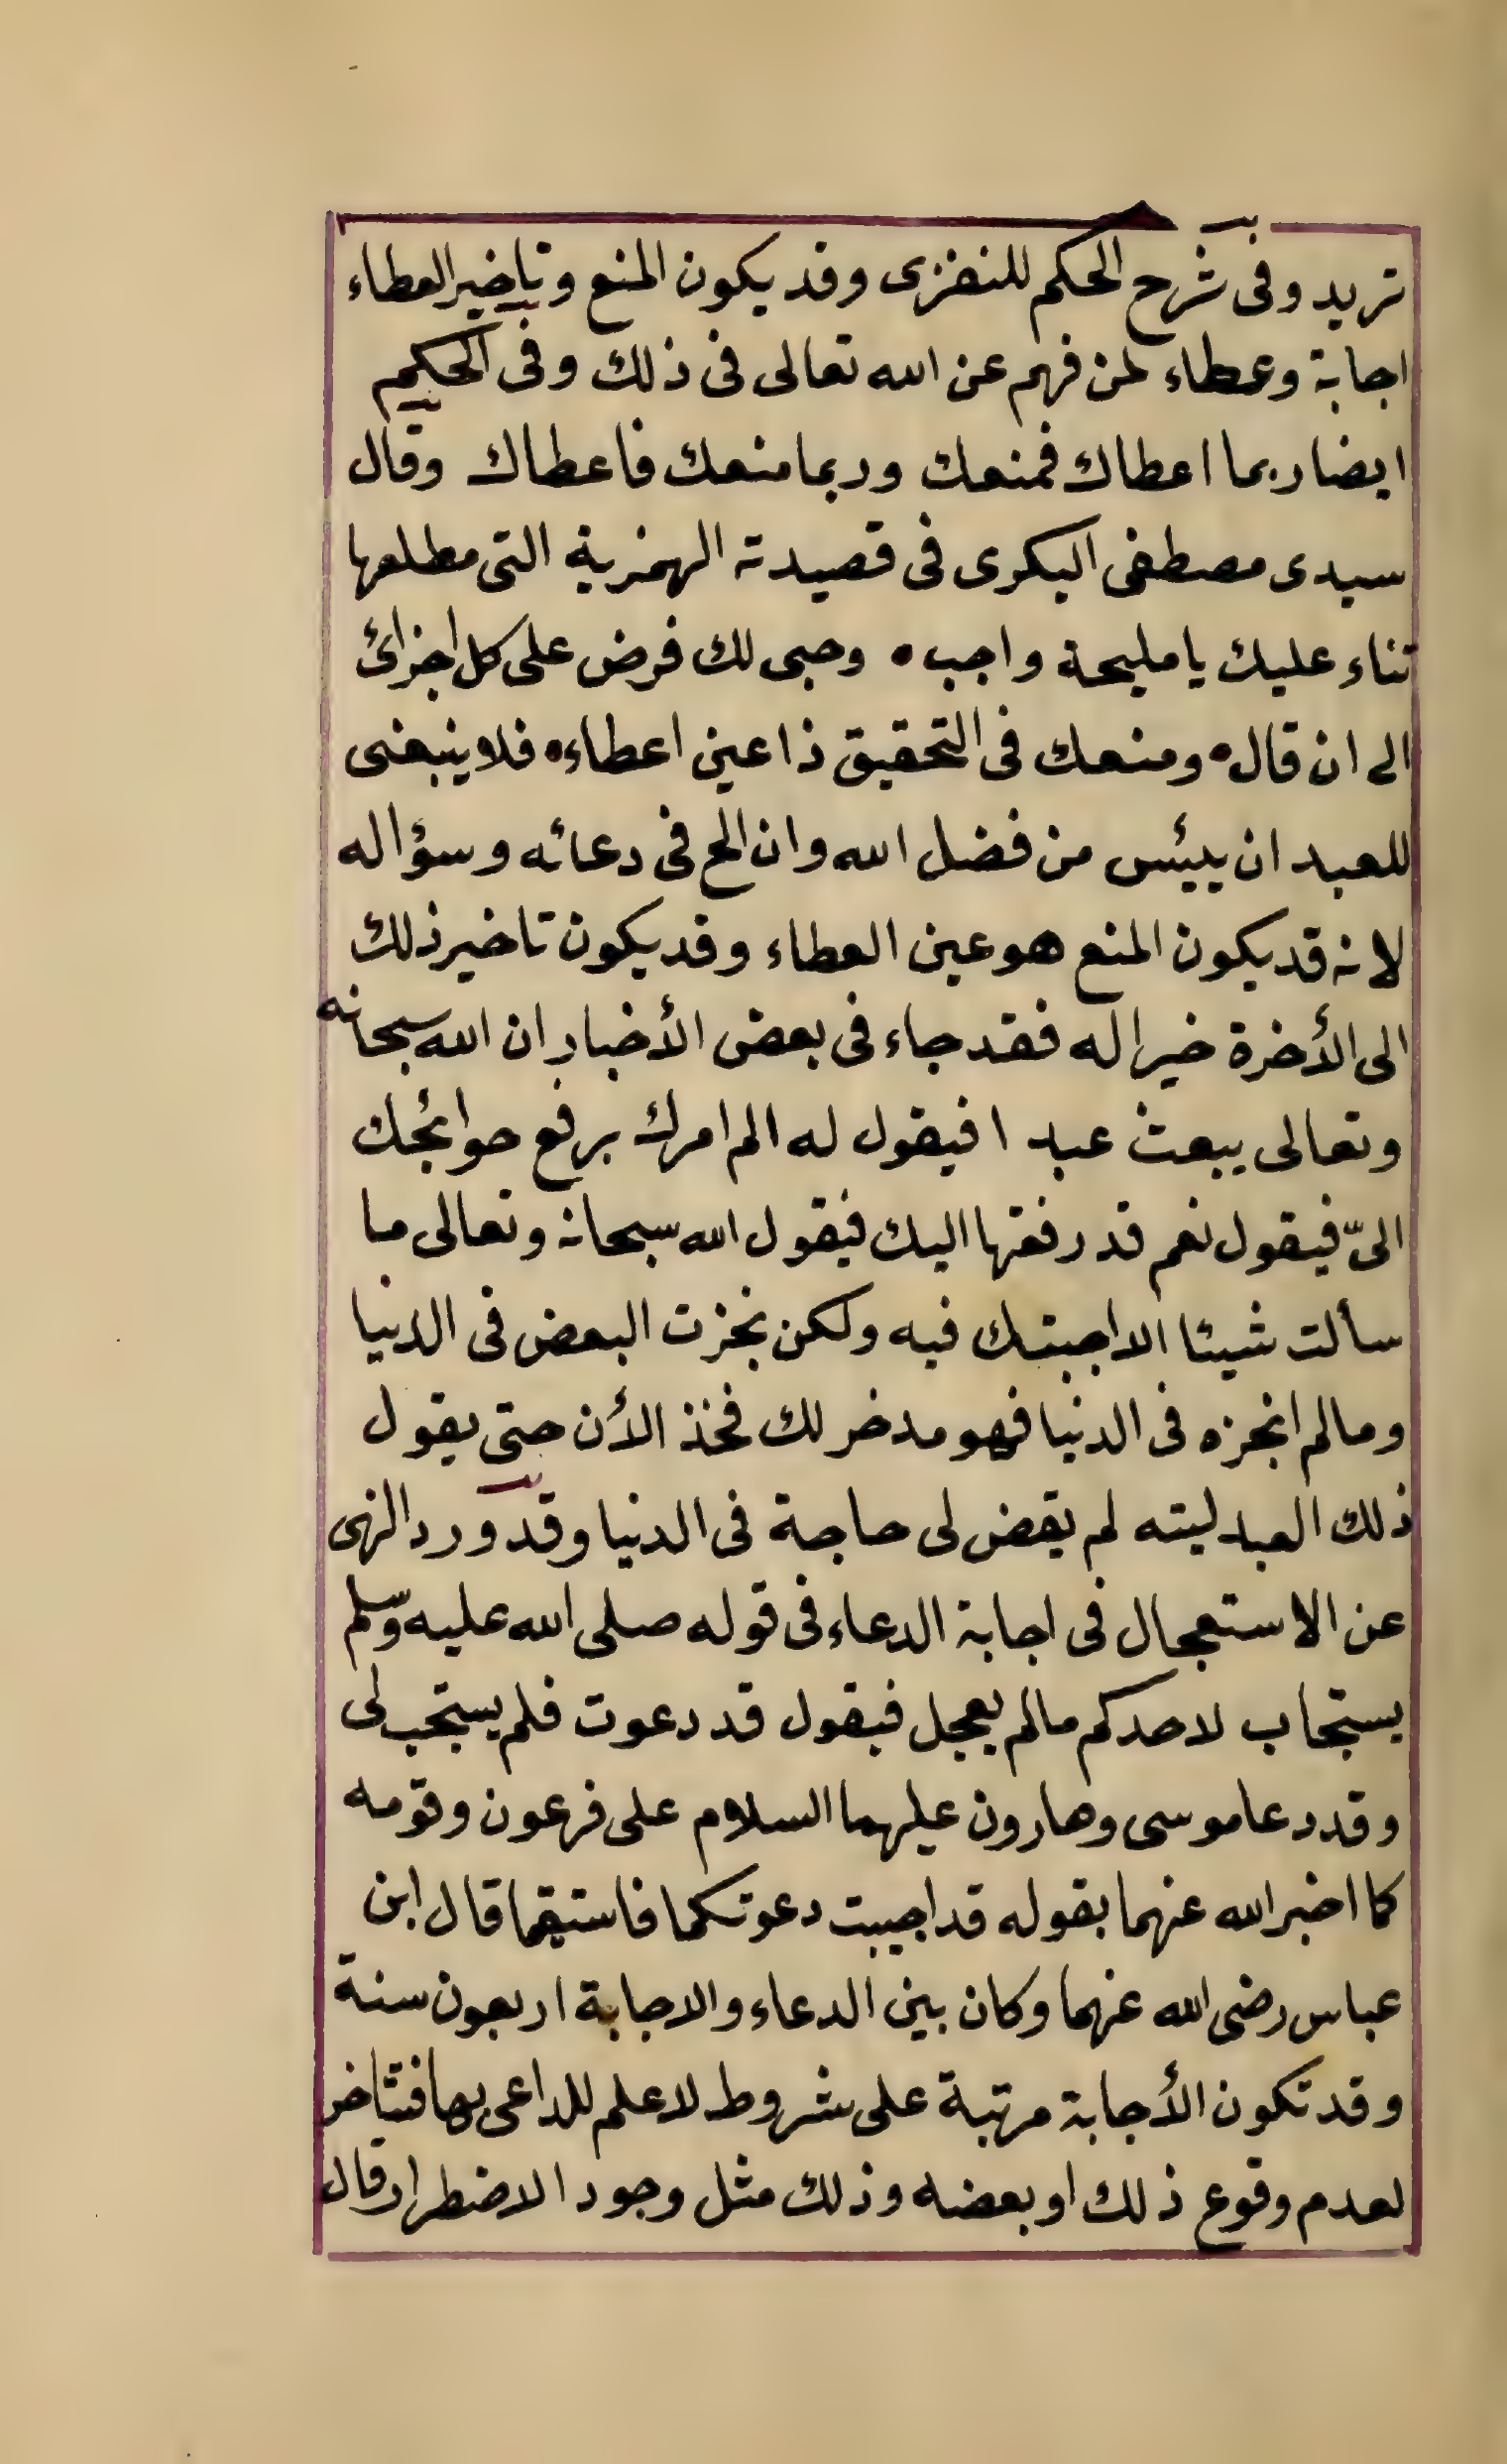 تريد وفى شرح الحكم للنفزى وقد يكون المنع وتاخير العطاء
اجابة وعطاء لمن فهم عن الله تعالى فى ذلك وفى الحكم
ايضا ربما اعطاك فمنعك وربما منعك فاعطاك وقال
سيدى مصطفى البكرى فى قصيدته الهمزية التى مطلعها
ثناء عليك يا مليحة واجب • وحبى لك فرض على كل اجزائ
الى ان قال • ومنعك فى التحقيق ذا عين اعطاء • فلا ينبغى
للعبد ان ييئس من فضل الله وان الح فى دعائه وسؤاله
لانه قد يكون المنع هو عين العطاء وقد يكون تاخير ذلك
الى الأخرة خيرا له فقد جاء فى بعض الأخبار ان الله سبحانه
وتعالى يبعث عبدا فيقول له الم امرك برفع حوائجك
الىّ فيقول نعم قد رفعتها اليك فيقول الله سبحانه وتعالى ما
سألت شيئا الا اجبتك فيه ولكن نجزت البعض فى الدنيا
ومالم انجزه فى الدنيا فهو مدخر لك فخذ الأن حتى يقول
ذلك العبد ليته لم يقض لى حاجة فى الدنيا وقد ورد النهى
عن الاستعجال فى اجابة الدعاء فى قوله صلى الله عليه وسلم
يستجاب لاحدكم مالم يعجل فيقول قد دعوت فلم يستجب لى
وقد دعا موسى وهارون عليهما السلام على فرعون وقومه
كما اخبر الله عنهما بقوله قد اجيبت دعوتكما فاستقيما قال ابن
عباس رضى الله عنهما وكان بين الدعاء والاجابة اربعون سنة
وقد تكون الأجابة مرتبة على شروط لا علم للداعى بها فتتاخر
لعدم وقوع ذلك او بعضه وذلك مثل وجود الاضطرار قال